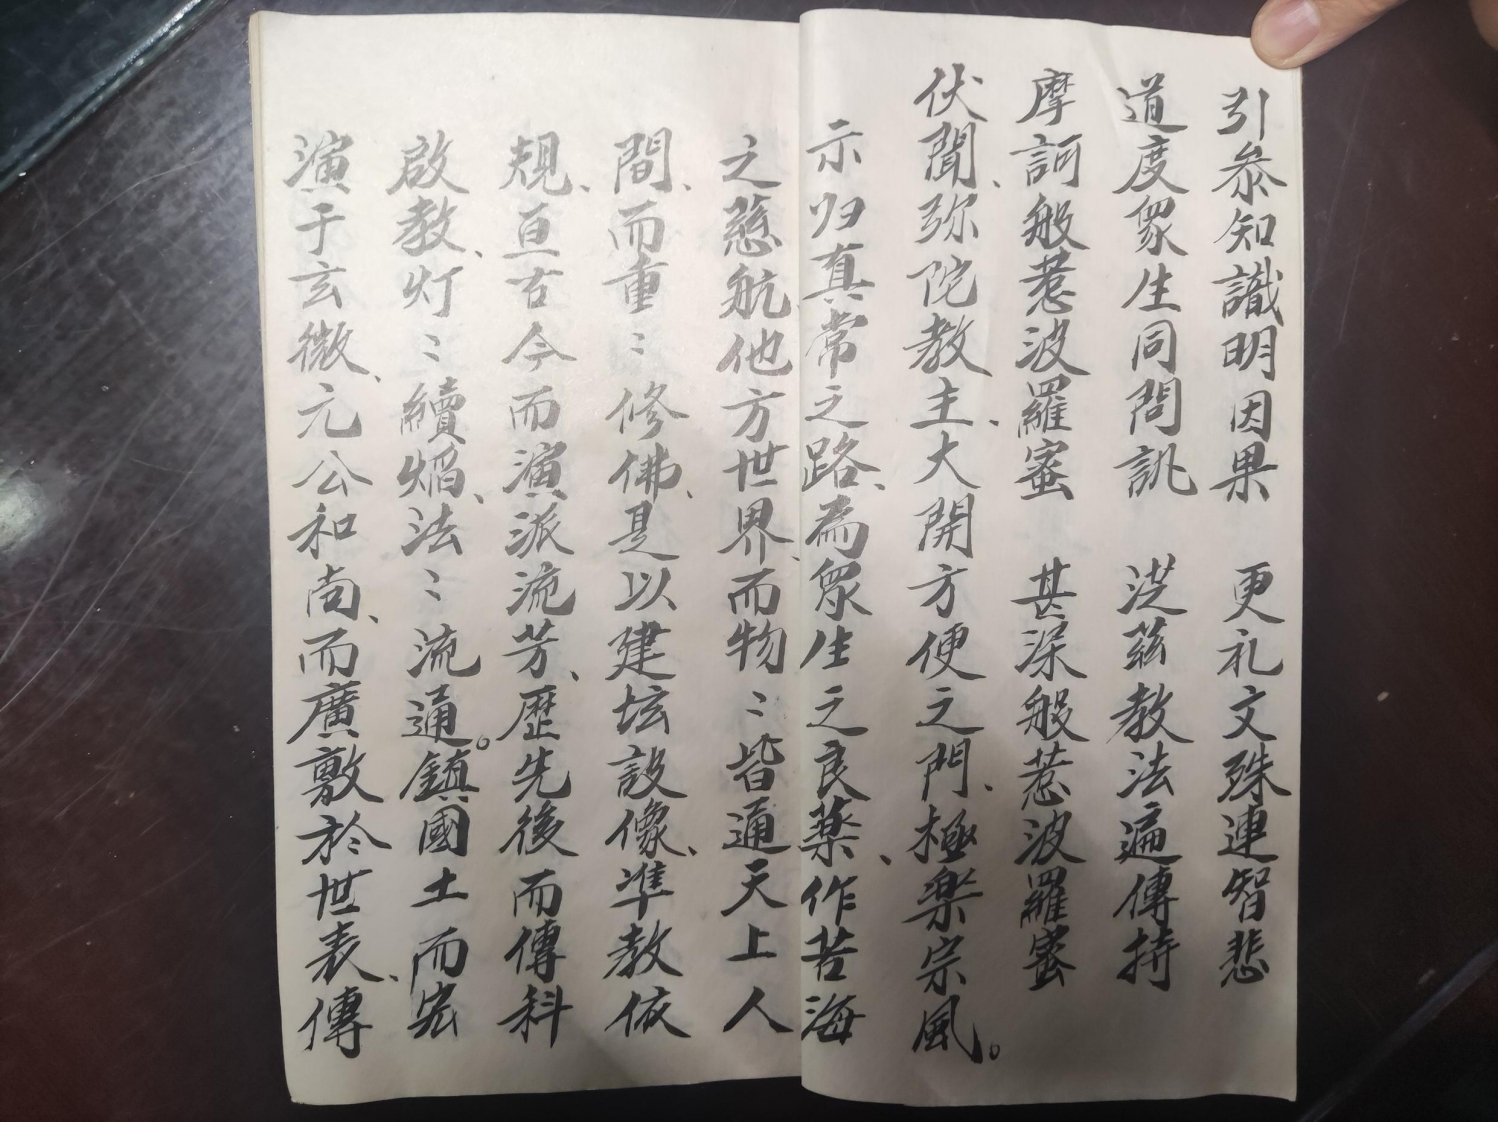 引叅知識明因果　更礼文殊連智悲
道度眾生同問訊　茲教法遍傳持
摩訶般惹波羅蜜　甚深般惹波羅蜜
伏聞、弥陀教主、大開方便之門、極樂宗風。
示归真常之路、為眾生之良薬、作苦海
之慈航他方世界、而物〻皆通天上人
間、而重〻修佛、是以建坛設像、準教依
規、亘古今而演派流芳、歷先後而傳科
啟教、灯〻續焰、法〻流通。鎮國土而宏
演于玄微、元公和尚、而廣敷於世表、傳